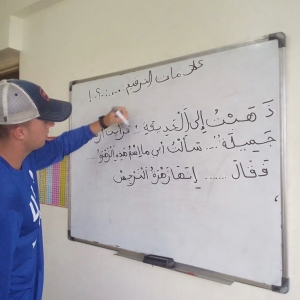 علامات الترقيم ....:،؟.!
ذَهَبْتُ إِلَى الْحَدِيقَةِ
جَمِيلَةً .... سَأَلْتُ أبي ما اسْمُ هذِهِ الزَّهْرَةِ ....
فَقَالَ ....... إِنَّهَا زَهْرَةُ النَّرْجِسْ